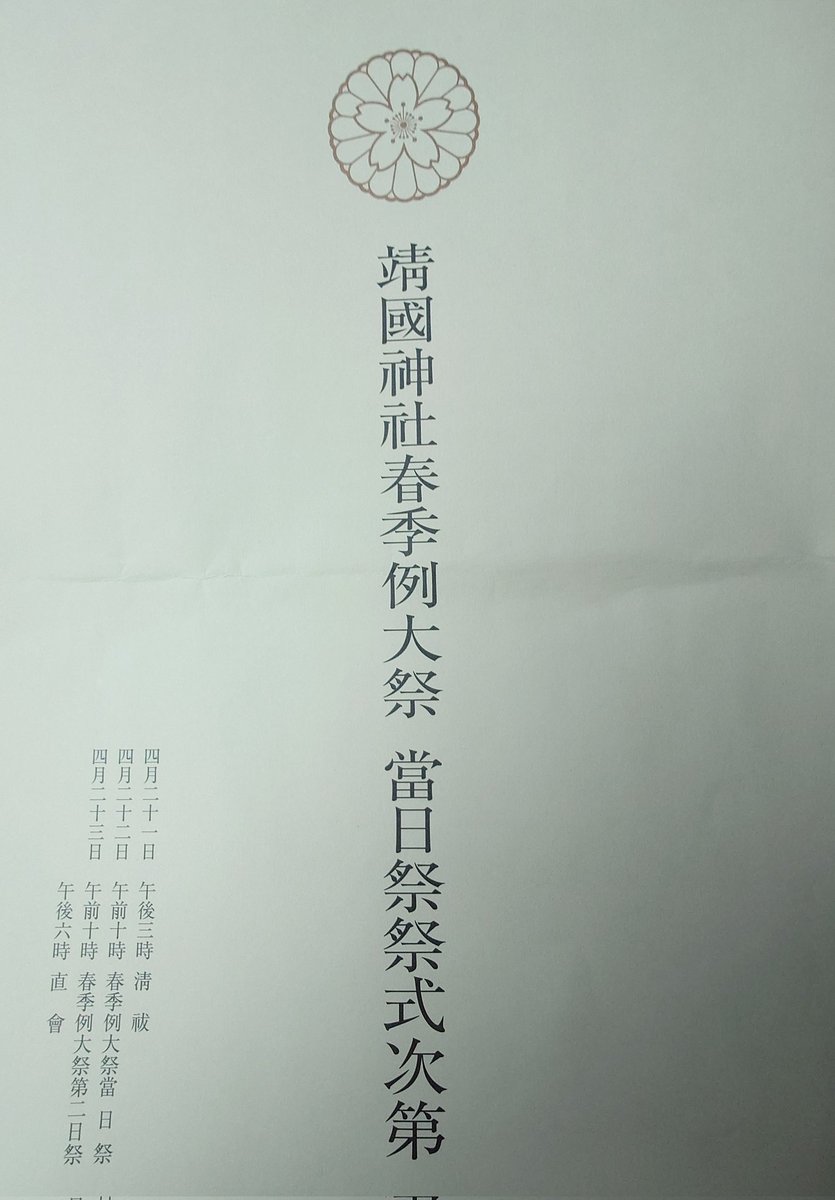 靖國神社春季例大祭 當日祭祭式次第
四月二十一日 午後三時 淸祓
四月二十二日 午前十時 春季例大祭當日祭
四月二十三日 午前十時 春季例大祭第二日祭
午後六時 直會